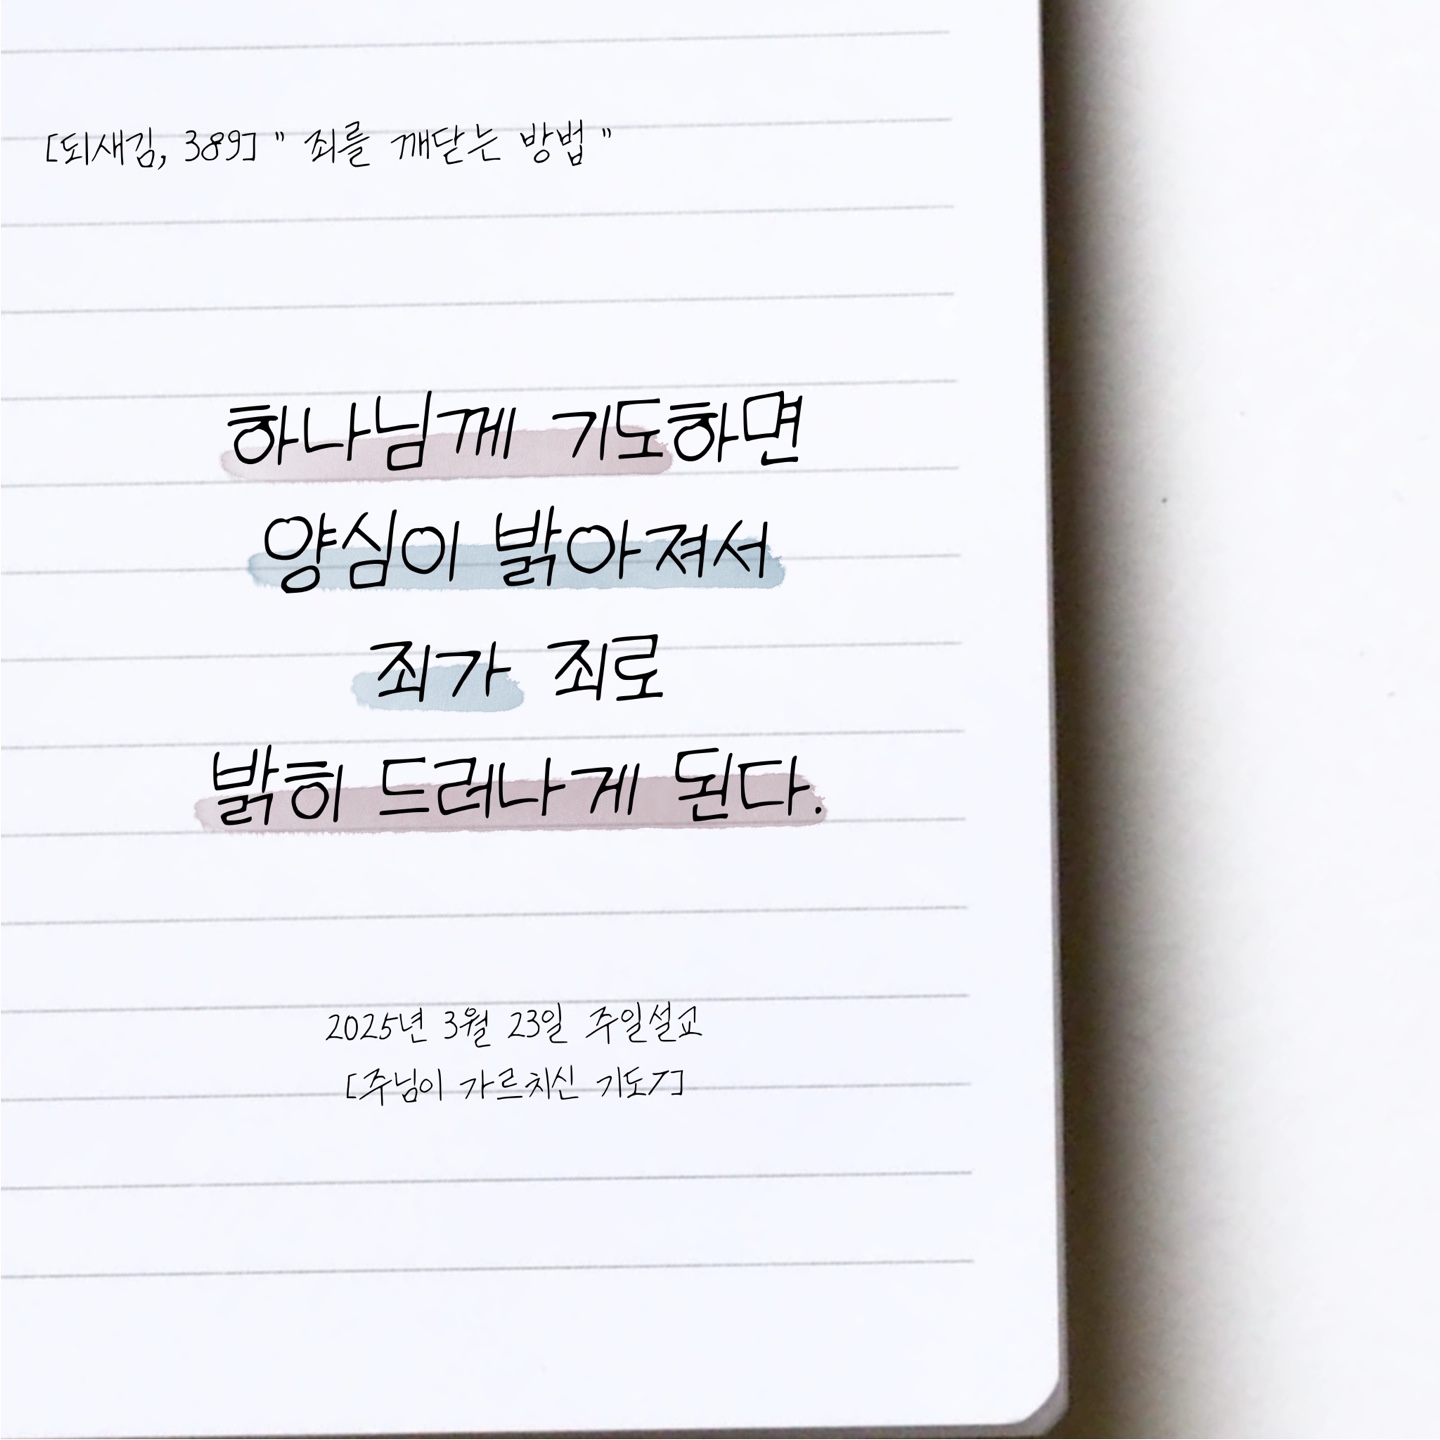 [되새김, 389] " 죄를 깨닫는 방법 "
하나님께 기도하면
양심이 밝아져서
죄가 죄로
밝히 드러나게 된다.
2025년 3월 23일 주일설교
[주님이 가르치신 기도7]